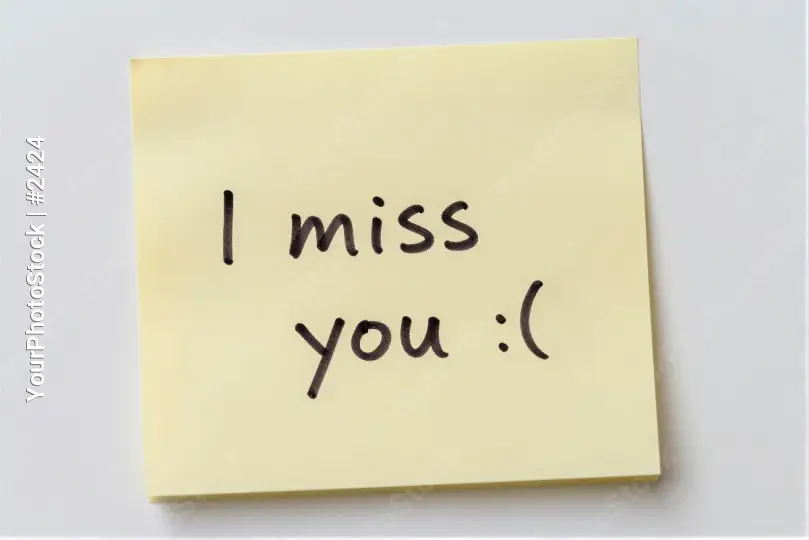 I miss
you :(
YourPhotoStock | #2424